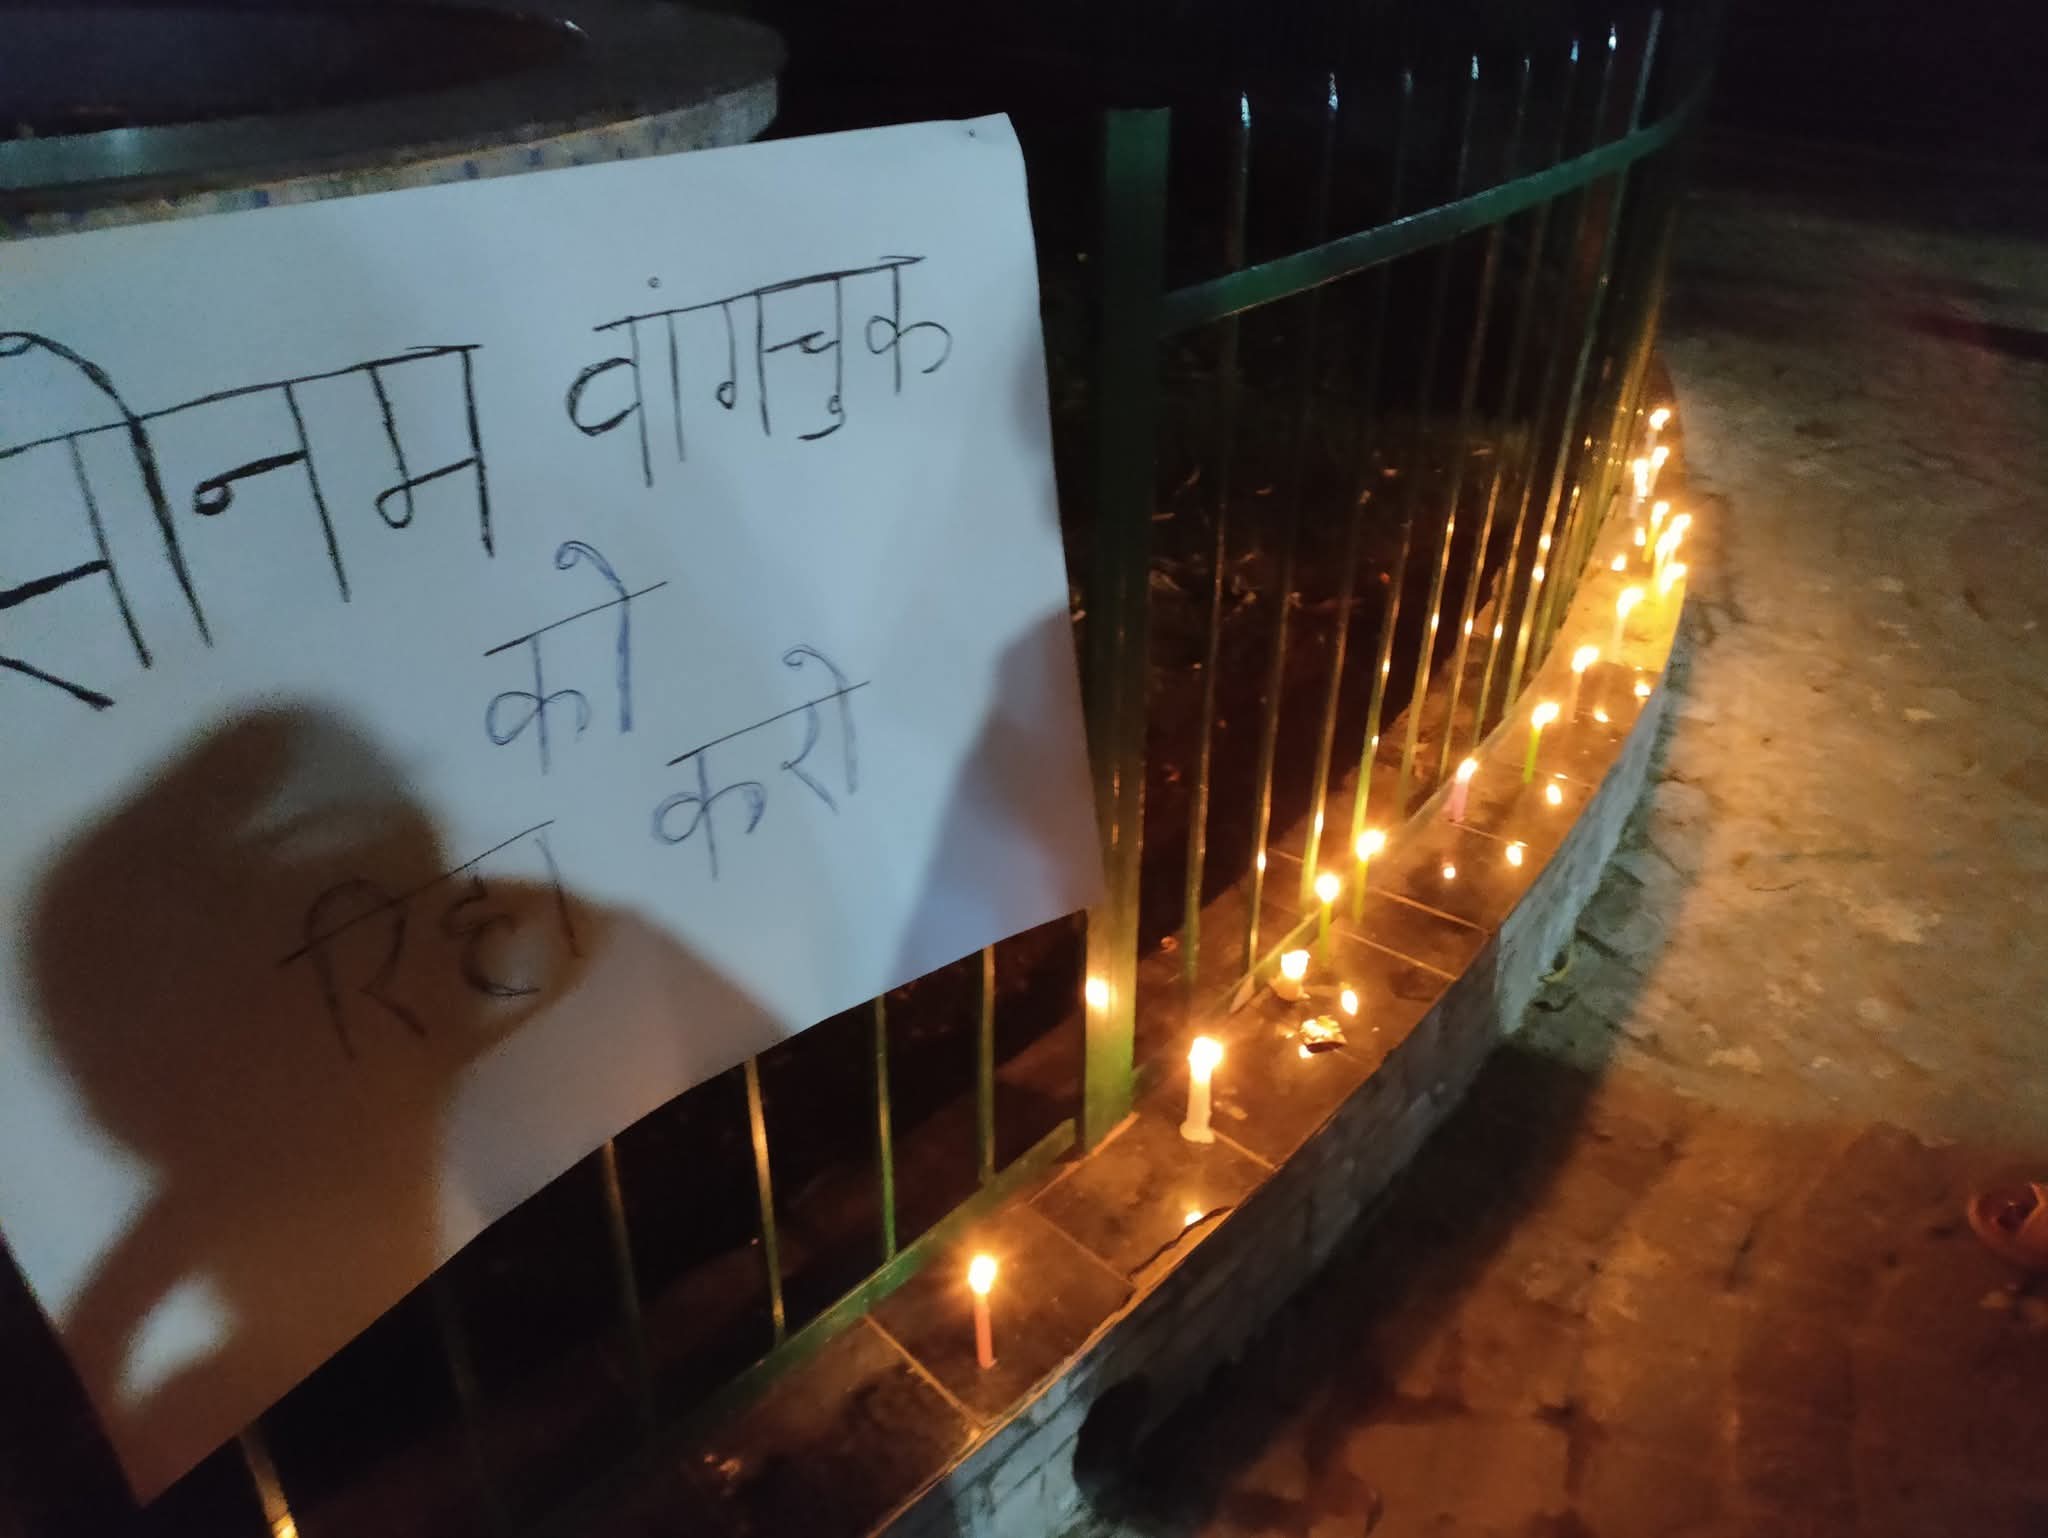 सोनम वांगचुक
को
रिहा करो